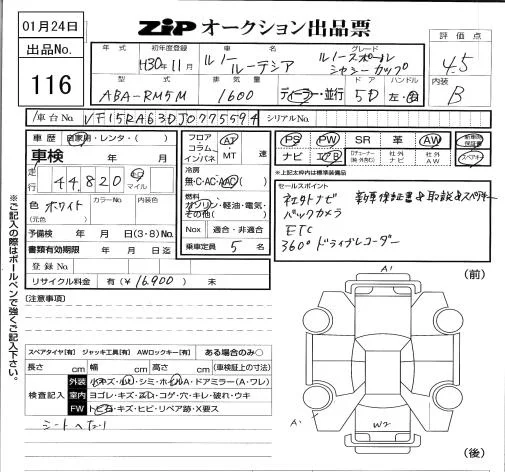 01月24日
出品No.
116
ZIP オークション出品票
評価点
4.5
内装
B
年式 初年度登録 車名 グレード
H30年11月 ルノー ルーテシア ルノースポール シャシーカップ
型式 排気量 ドア ハンドル
ABA-RM5M 1600 ディーラー・並行 5D 左・右
車台No. VF15RA63DJ0775594 シリアルNo.
車歴 自家用・レンタ・( )
車検 年 月
走行 44,820 km マイル
色 ホワイト カラーNo. 内装色
(元色)
予備検 年 月 日(3・8)No.
書類有効期限 年 月 日迄
登録No.
リサイクル料金 有(¥16,900) 未
フロア コラム インパネ AT MT 速
冷房 無・C・AC・AAC
燃料 ガソリン・軽油・電気・その他( )
Nox 適合・非適合
乗車定員 5 名
PS PW SR 革 AW 新車時保証書
ナビ エアB 社外ナビ 社外AW 取説
※上記太枠内は標準装備品
セールスポイント
社外ナビ 新車保証書&取説&スペアキー
バックカメラ
ETC
360°ドライブレコーダー
※ご記入の際はボールペンで強くご記入下さい。
(注意事項)
スペアタイヤ[有] ジャッキ工具[有] AWロックキー[有] ある場合のみ○
長さ cm 幅 cm 高さ cm (車検証上の寸法)
検査記入
外装 小キズ・凹・シミ・ホイルA・ドアミラー(A・ワレ)
室内 ヨゴレ・キズ・スレ・コゲ・穴・キレ・破れ・ウキ
FW トビ石・キズ・ヒビ・リペア跡・X要ス
シートヘたり
(前)
A1
A1
W2
(後)